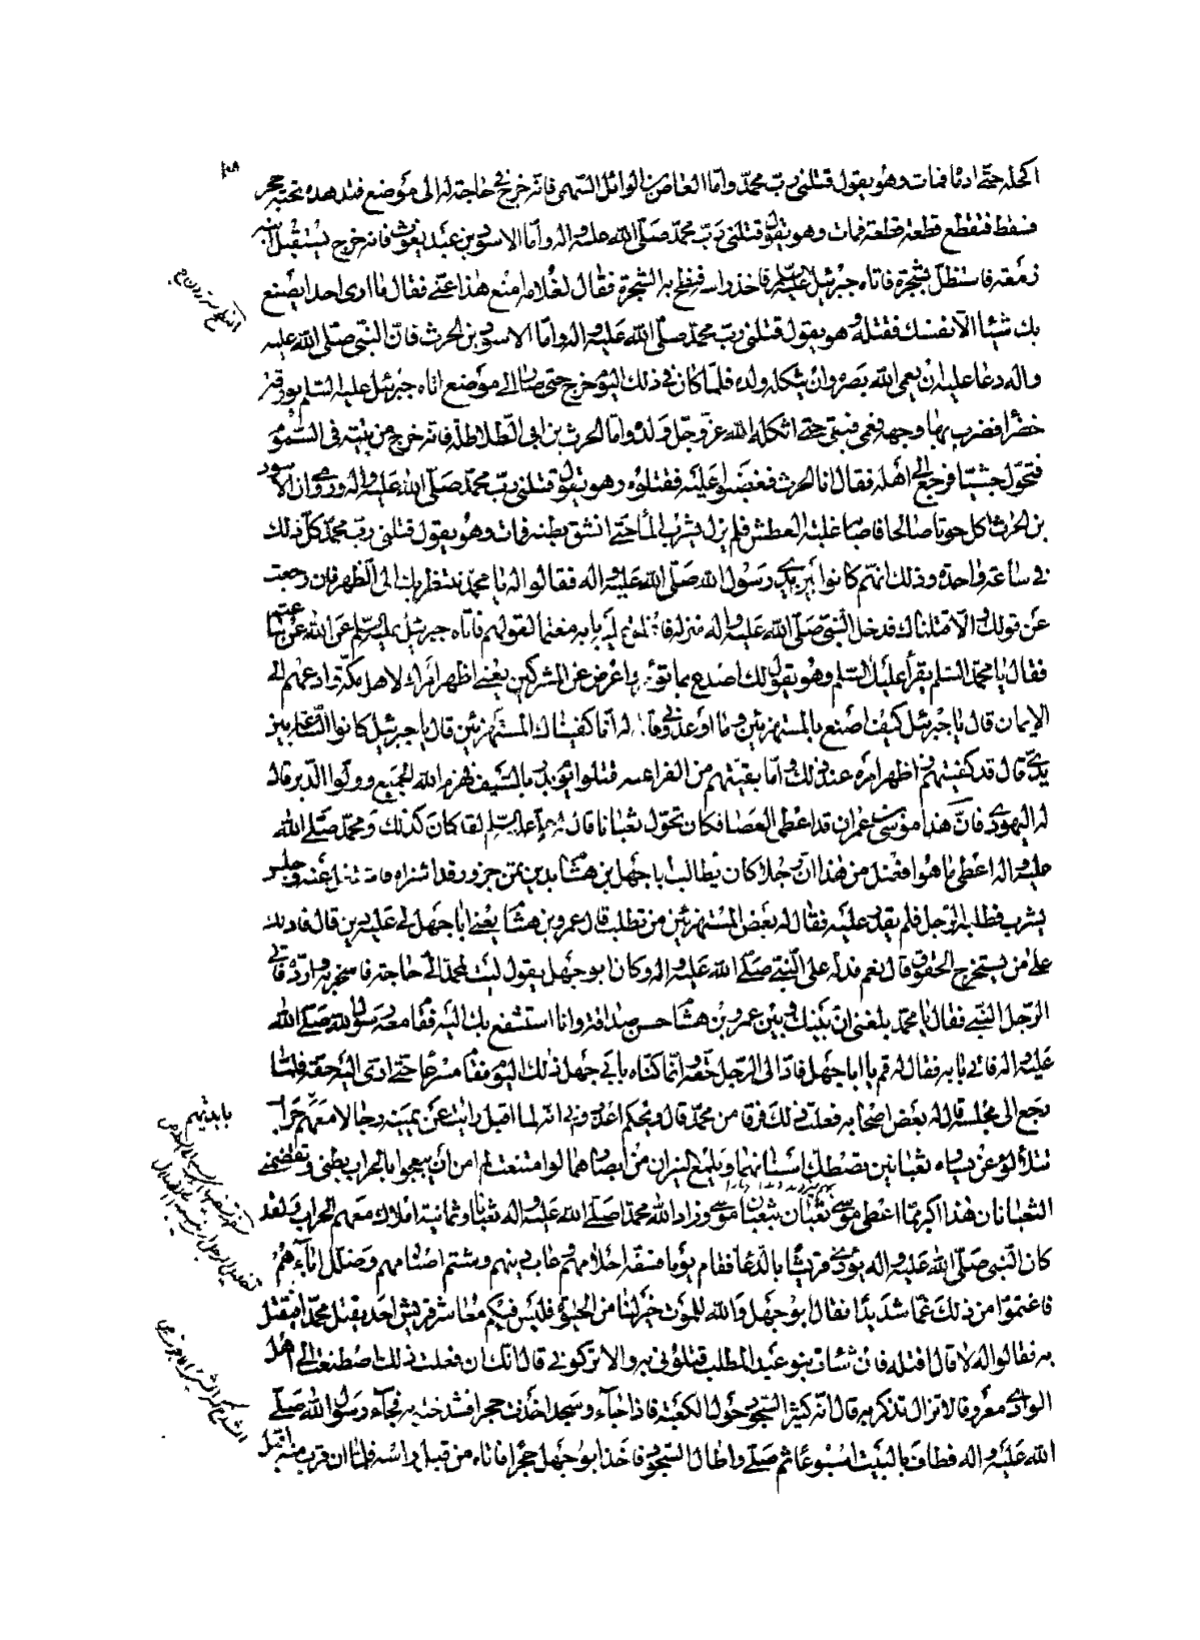 اكحله حتى ادماه فمات وهو يقول قتلني رب محمد واما العاص بن الوائل السهمي فانه خرج في حاجة له الى موضع فتدهده تحته حجر
فسقط فتقطع قطعة قطعة فمات وهو يقول قتلني رب محمد صلى الله عليه واله واما الاسود بن عبد يغوث فانه خرج يستقبل ابنه
زمعة فاستظل بشجرة فاتاه جبرئيل عليه السلم فاخذ راسه فنطح به الشجرة فقال لغلامه امنع هذا عني فقال ما ارى احدا يصنع
بك شيئا الا نفسك فقتله وهو يقول قتلني رب محمد صلى الله عليه واله واما الاسود بن الحرث فان النبي صلى الله عليه
واله دعا عليه ان يعمي الله بصره وان يثكله ولده فلما كان في ذلك اليوم خرج حتى صار الى موضع اتاه جبرئيل عليه السلم بورقة
خضراء فضرب بها وجهه فعمي فبقي حتى اثكله الله عز وجل ولده واما الحرث بن ابي الطلاطلة فانه خرج من بيته في السموم
فتحول حبشيا فرجع الى اهله فقال انا الحرث فغضبوا عليه فقتلوه وهو يقول قتلني رب محمد صلى الله عليه واله وروي ان الاسود
بن الحرث اكل حوتا مالحا فاصابه غلبة العطش فلم يزل يشرب الماء حتى انشق بطنه فمات وهو يقول قتلني رب محمد كل ذلك
في ساعة واحدة وذلك انهم كانوا بين يدي رسول الله صلى الله عليه واله فقالوا له يا محمد ننتظر بك الى الظهر فان رجعت
عن قولك والا قتلناك فدخل النبي صلى الله عليه واله منزله فاغلق عليه بابه مغتما لقولهم فاتاه جبرئيل عليه السلم عن الله عن ساعته
فقال يا محمد السلم يقرا عليك السلم وهو يقول لك اصدع بما تؤمر واعرض عن المشركين يعني اظهر امرك لاهل مكة وادعهم الى
الايمان قال يا جبرئيل كيف اصنع بالمستهزئين وما اوعدوني وقال له انا كفيناك المستهزئين قال يا جبرئيل كانوا الساعة بين
يدي قال قد كفيتهم فاظهر امره عند ذلك واما بقيتهم من الفراعنة قتلوا يوم بدر بالسيف وهزم الله الجمع وولوا الدبر قال
له اليهودي فان هذا موسى بن عمران قد اعطي العصا فكان تحول ثعبانا قال له علي عليه السلم لقد كان كذلك ومحمد صلى الله
عليه واله اعطي ما هو افضل من هذا ان رجلا كان يطالب ابا جهل بن هشام بدين ثمن جزور قد اشتراه فاشتغل عنه وجلس
يشرب فطلبه الرجل فلم يقدر عليه فقال له بعض المستهزئين من تطلب قال عمرو بن هشام يعني ابا جهل لي عليه دين قال فادلك
على من يستخرج الحقوق قال نعم فدله على النبي صلى الله عليه واله وكان ابو جهل يقول ليت لمحمد الي حاجة فاسخر به وارده فاتى
الرجل النبي فقال يا محمد بلغني ان بينك وبين عمرو بن هشام حسن صداقة وانا استشفع بك اليه فقام معه رسول الله صلى الله
عليه واله فاتى بابه فقال له قم يا ابا جهل فاد الى الرجل حقه انما كناه بابي جهل ذلك اليوم فقام مسرعا حتى ادى اليه حقه فلما
رجع الى مجلسه قال له بعض اصحابه فعلت ذلك فرقا من محمد قال ويحكم اعذروني انه لما اقبل رايت عن يمينه رجالا معهم حراب
تتلألؤ وعن يساره ثعبانين تصطك اسنانهما وتلمع النيران من ابصارهما لو امتنعت لم امن ان يبعجوا بالحراب بطني وتقضمني
الثعبانان هذا اكبر مما اعطي موسى ثعبان بثعبان موسى وزاد الله محمدا صلى الله عليه واله ثعبانا وثمانية املاك معهم الحراب ولقد
كان النبي صلى الله عليه واله يؤذي قريشا بالدعاء فقام يوما فسفه احلامهم وعاب دينهم وشتم اصنامهم وضلل اباءهم
فاغتموا من ذلك غما شديدا فقال ابو جهل والله للموت خير لنا من الحيوة فليس فيكم معاشر قريش احد يقتل محمدا فيقتل
به فقالوا له لا قال انا اقتله فان شاءت بنو عبد المطلب قتلوني به والا تركوني قال انك ان فعلت ذلك اصطنعت الى اهل
الوادي معروفا لا تزال تذكر به قال انه كثير السجود حول الكعبة فاذا جاء وسجد اخذت حجرا فشدخته به فجاء رسول الله صلى
الله عليه واله فطاف بالبيت اسبوعا ثم صلى واطال السجود فاخذ ابو جهل حجرا فاتاه من قبل راسه فلما ان قرب منه اقبل